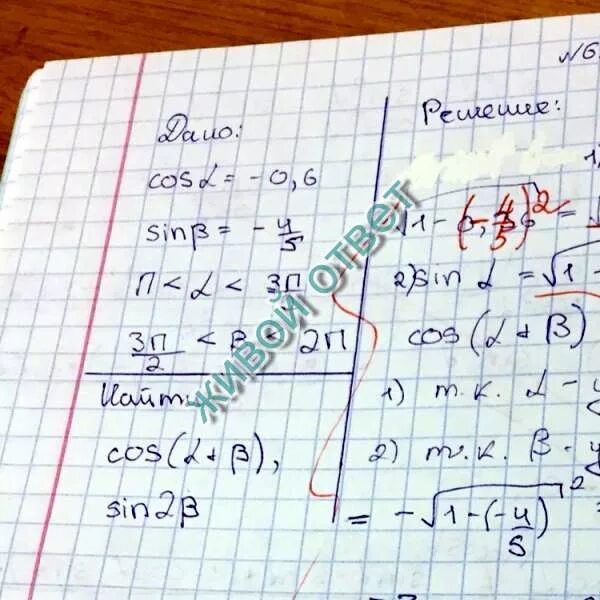 N6
Дано:
cos α = -0,6
sin β = - 4/5
π < α < 3π
3π/2 < β < 2π
Найти
cos(α + β),
sin2β
Решение:
1)
√1-(-4/5)² = √
2) sin α = √1 -
cos(α + β)
1) т.к. α - 
2) т.к. β - 
= -√1-(-4/5)²
ЖИВОЙ ОТВЕТ